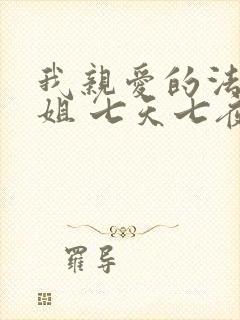 我親愛的法
姐 七天七夜
羅导